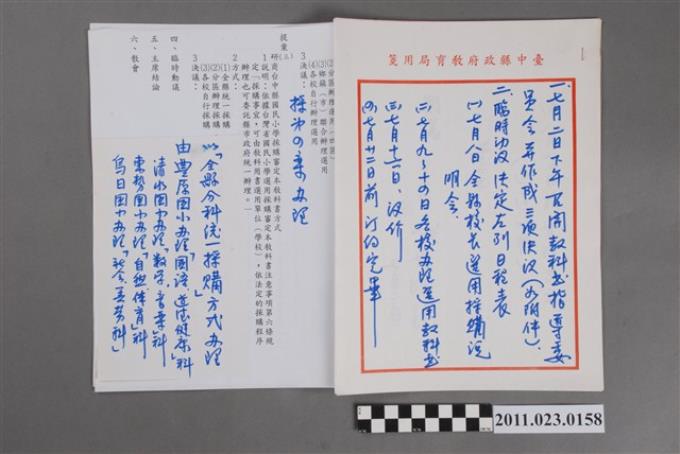 臺中縣政府教育局用箋
一、七月二日下午召開教科書指導委
員會並作成三項決議(如附件)。
二、臨時動議決定左列日程表
㈠七月八日全縣校長選用採購說
明會。
㈡七月九~十四日各校辦理選用教科書
㈢七月十六日,議價
㈣七月廿二日前訂約完畢
(2)分區辦理選用
(3)鄉鎮(市)聯合辦理選用
(4)各校自行辦理選用
3決議:
採第四案辦理
提案㈢
研商台中縣國民小學採購審定本教科書方式
1說明:依據台灣省國民小學選用採購審定本教科書注意事項第六條規
定「採購事宜,可由教科用書選用單位(學校),依法定的採購程序
辦理也可委託縣市政府統一辦理。」
2方式:
(1)全縣統一採購
(2)分區辦理採購
(3)各校自行採購
3決議:
以「全縣分科統一採購方式辦理
由豐原國小辦理「國語、道德健康」科
清水國小辦理「數學、音樂」科
東勢國小辦理「自然、體育」科
烏日國小辦理「社會、美勞科」
四、臨時動議
五、主席結論
六、散會
2011.023.0158